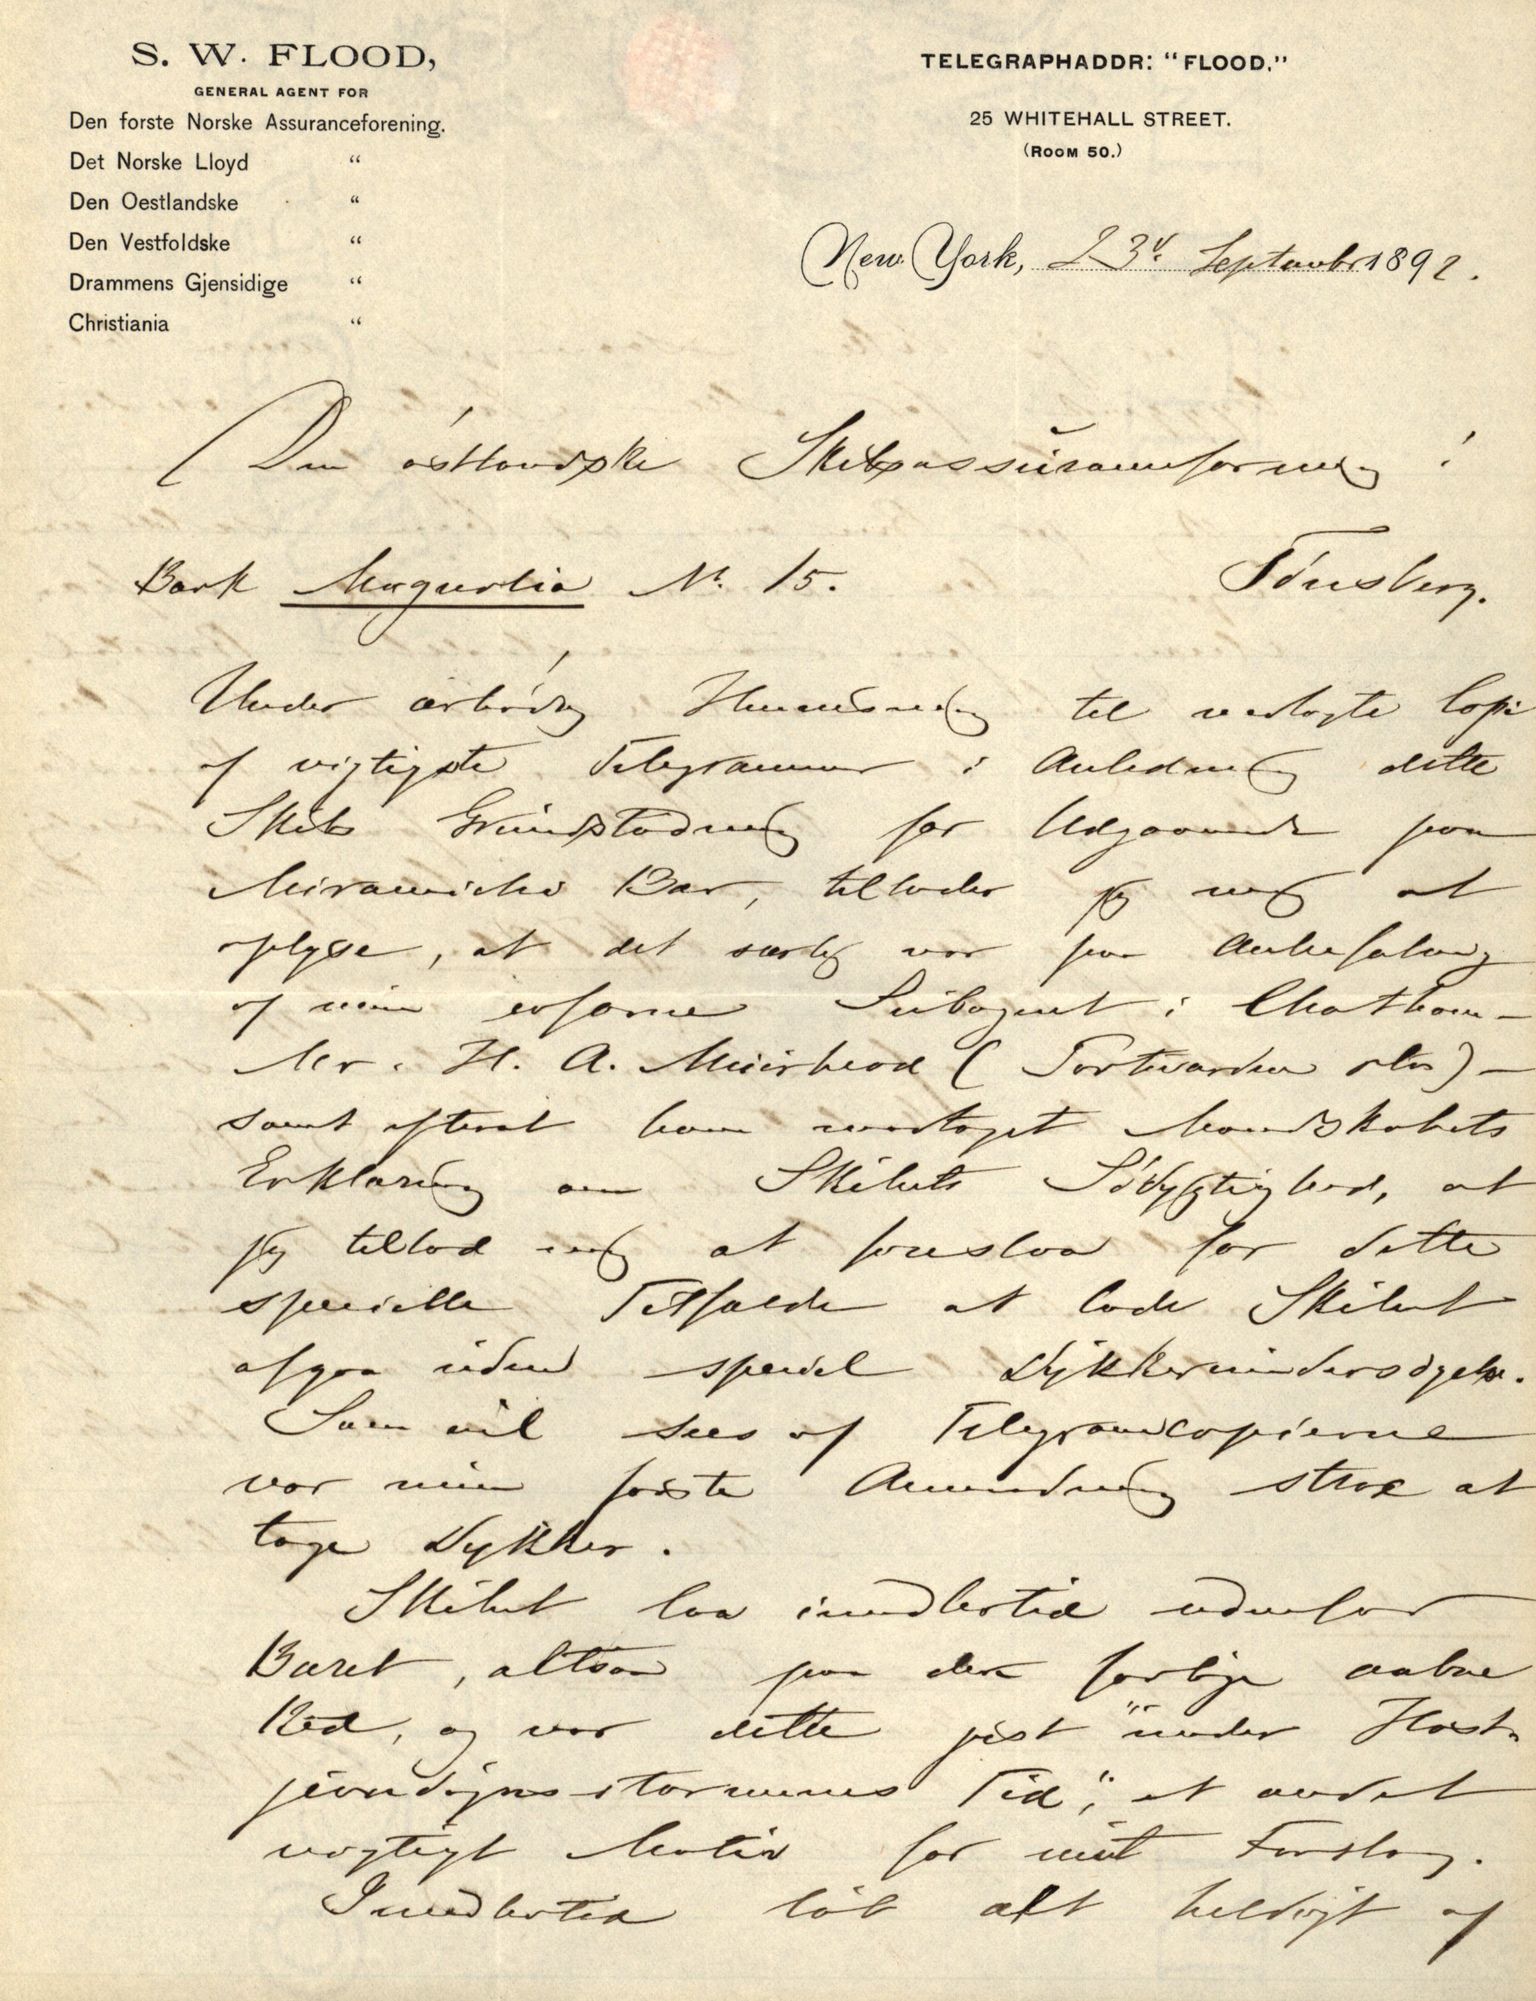 S. W. FLOOD,
GENERAL AGENT FOR
Den forste Norske Assuranceforening.
Det Norske Lloyd "
Den Oestlandske "
Den Vestfoldske "
Drammens Gjensidige "
Christiania "
TELEGRAPHADDR: "FLOOD."
25 WHITEHALL STREET.
(ROOM 50.)
New York, 23d. September 1892.
Den östlandske Skibsassüranceforening !
Bark Magnolia No. 15. Tönsberg.
Under ærbödig Henvisning til vedlagte Copi
af vigtigste Telegrammer i Anledning dette
Skibs Grundstødning for Udgaaende paa
Miramichi Bar, tillader jeg mig at
oplyse, at det særlig var paa Anbefaling
af min erfarne Subagent i Chatham –
Mr. H. A. Muirhead ( Portwarden ) –
samt efterat have modtaget Mandskabets
Erklæring om Skibets Sødygtighed, at
jeg tillod mig at foreslaa for dette
specielle Tilfælde at lade Skibet
afgaa uden speciel Dykkerundersøgelse.
Som vil sees af Telegramcopierne
var min første Anvendning strax at
tage Dykker.
Skibet laa imidlertid udenfor
Baret, altsaa paa den farlige aabne
Red, og var dette just "under Høst-
jevndøgnsstormenes Tid", et andet
vigtigt Motiv for mit Forslag.
Imidlertid løb alt heldigt af